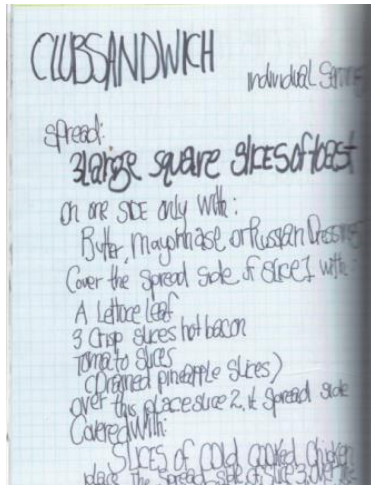 CLUBSANDWICH
individual Serving
spread:
3 large square slices of toast
on one SIDE only with:
Butter, mayonnaise or Russian Dressing
Cover the spread side of slice 1 with:
A Lettuce leaf
3 Crisp slices hot bacon
Tomato slices
(Drained pineapple slices)
over this place slice 2, it spread side
Covered with:
SLICES of cold cooked chicken
place the spread side of slice 3, over the